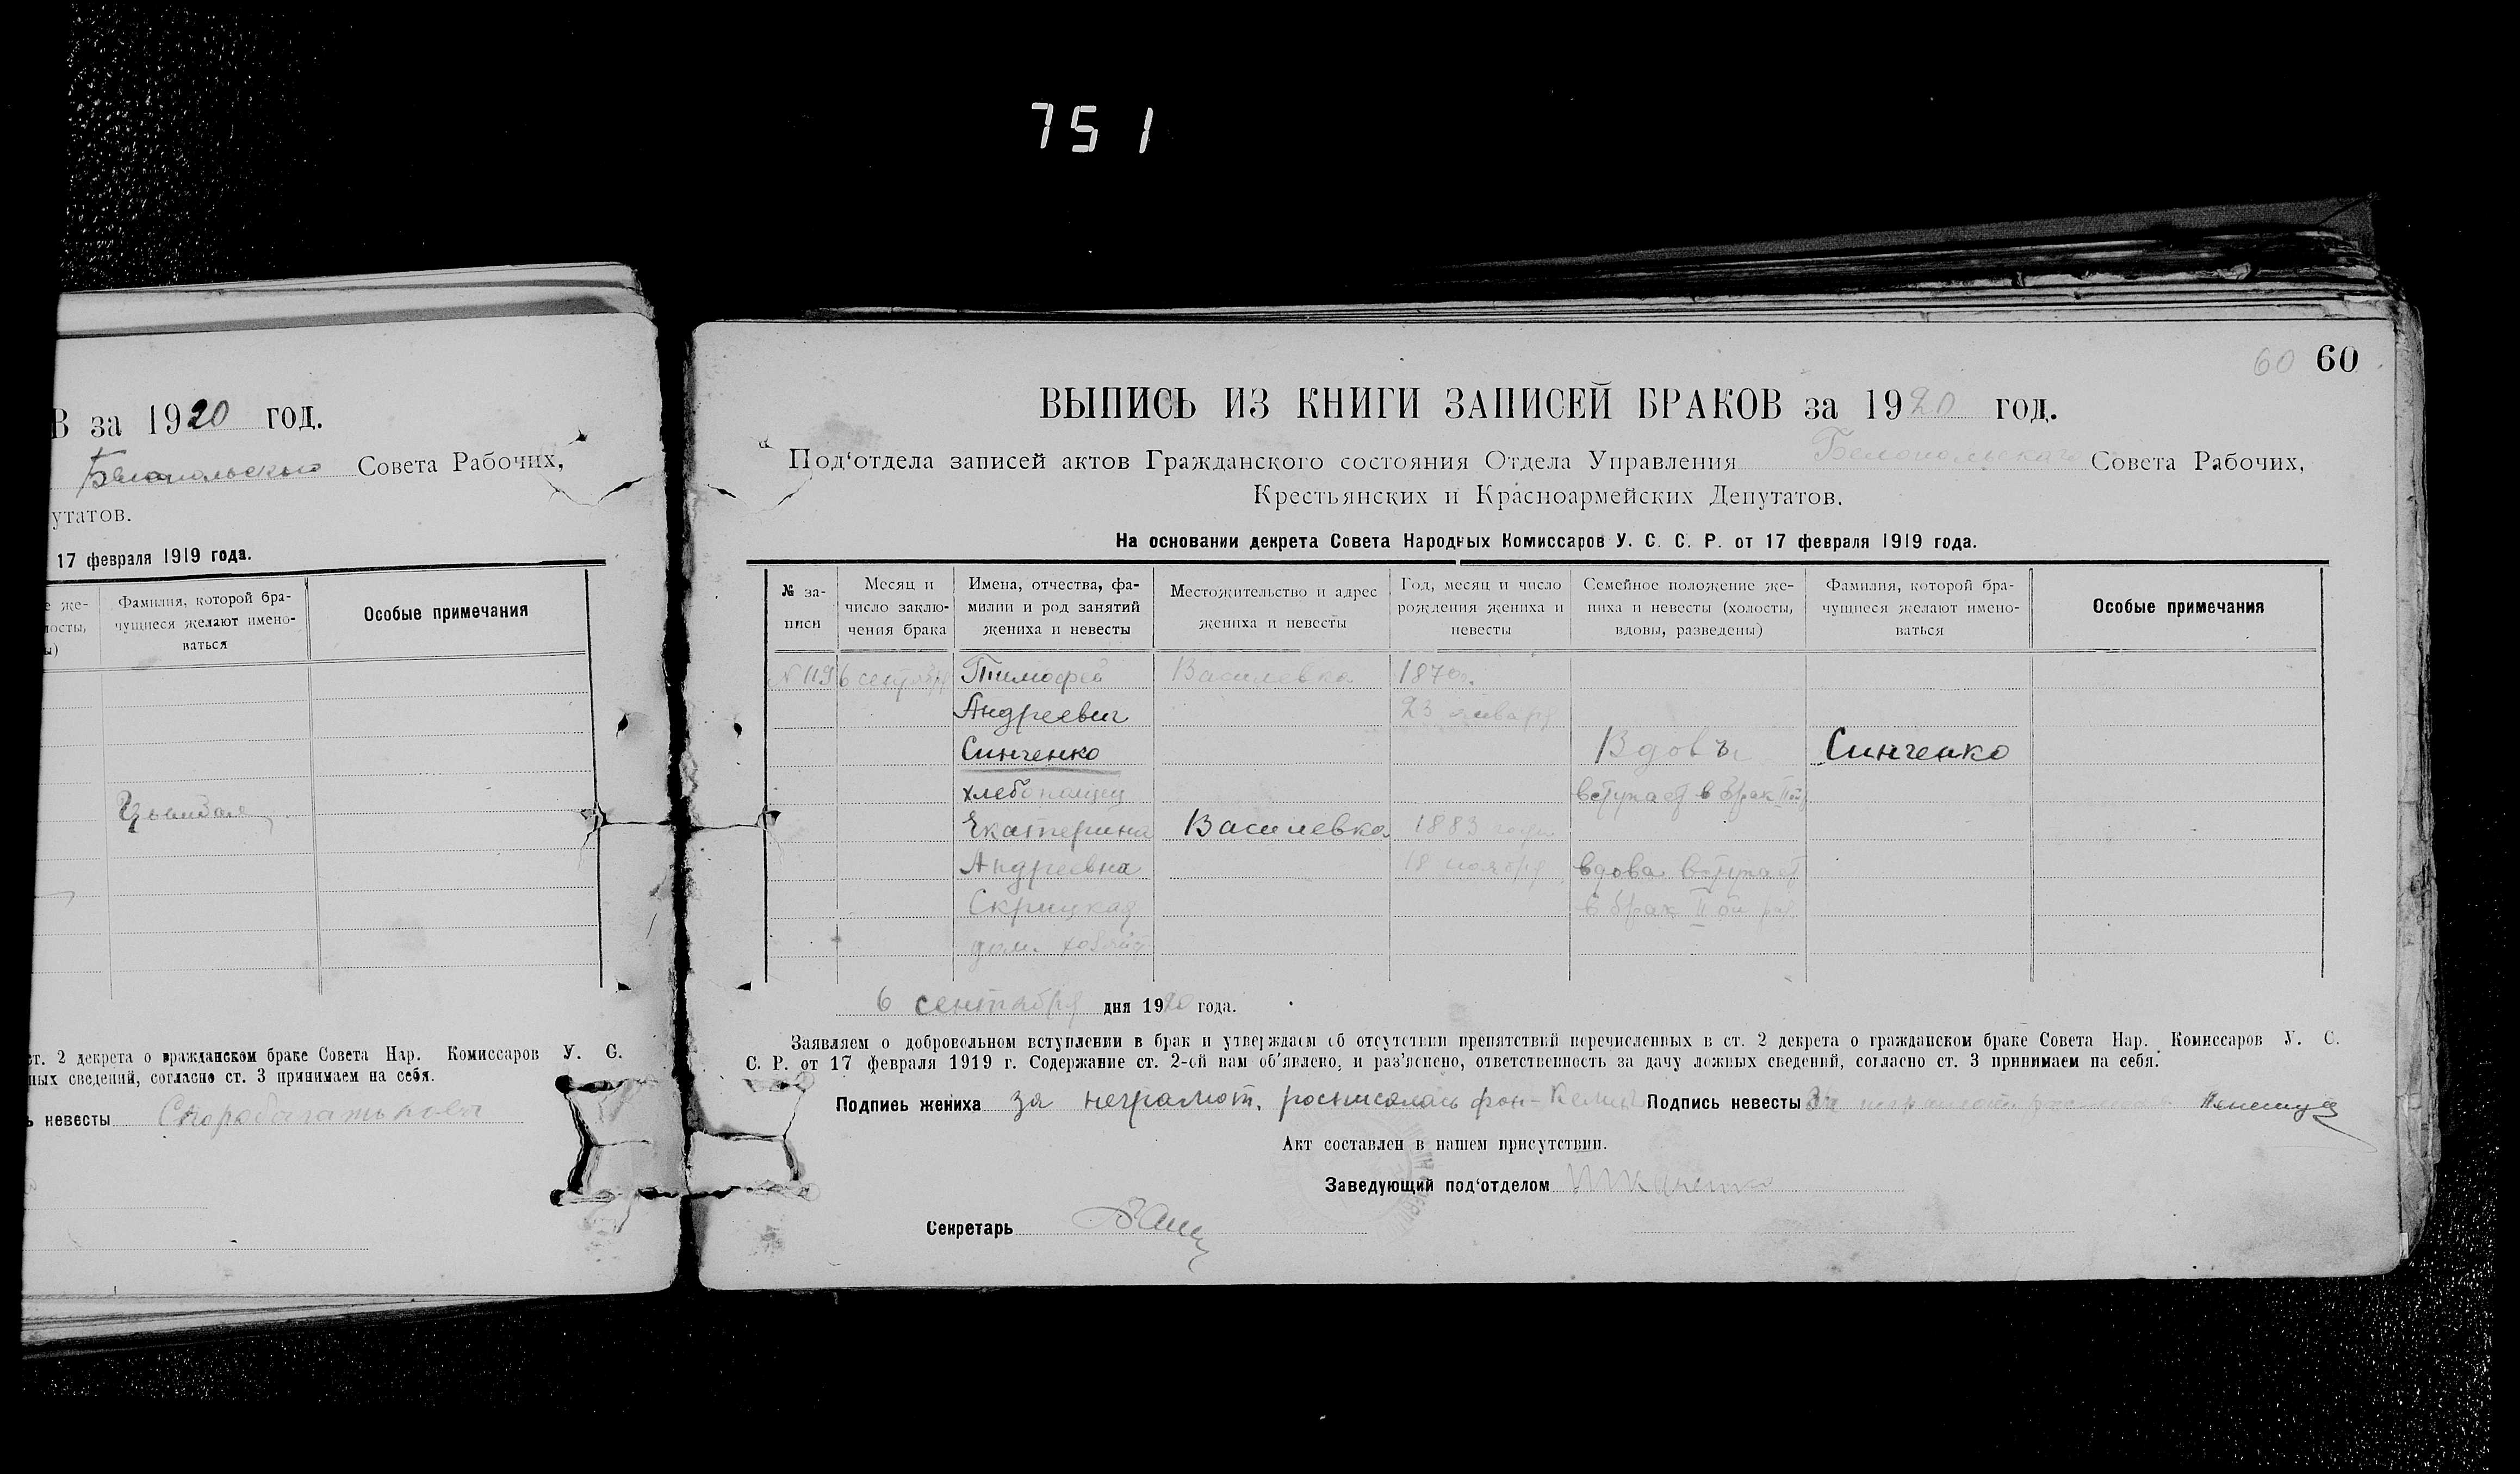 751
В за 1920 год.
Совета Рабочих,
утатов.
17 февраля 1919 года.
е же-
лосты,
ы)
Фамилия, которой бра-
чущиеся желают имено-
ваться
Особые примечания
ст. 2 декрета о гражданском браке Совета Нар. Комиссаров У. С.
ных сведений, согласно ст. 3 принимаем на себя.
ь невесты
60 60
ВЫПИСЬ ИЗ КНИГИ ЗАПИСЕЙ БРАКОВ за 1920 год.
Под‘отдела записей актов Гражданского состояния Отдела Управления Белопольскаго Совета Рабочих,
Крестьянских и Красноармейских Депутатов.
На основании декрета Совета Народных Комиссаров У. С. С. Р. от 17 февраля 1919 года.
№ за-
писи
Месяц и
число заклю-
чения брака
Имена, отчества, фа-
милии и род занятий
жениха и невесты
Местожительство и адрес
жениха и невесты
Год, месяц и число
рождения жениха и
невесты
Семейное положение же-
ниха и невесты (холосты,
вдовы, разведены)
Фамилия, которой бра-
чущиеся желают имено-
ваться
Особые примечания
№ 119 6 сентября Тимофей Василевка 1870г.
Андреевич 23 января
Синченко Вдовъ, Синченко
хлебопашец вступает в брак II ой
Екатерина Василевка 1883 года
Андреевна 18 ноября вдова вступает
Скрицкая в брак II ой раз
дом. хозяйка
6 сентября дня 1920 года.
Заявляем о добровольном вступлении в брак и утверждаем об отсутствии препятствий перечисленных в ст. 2 декрета о гражданском браке Совета Нар. Комиссаров У. С.
С. Р. от 17 февраля 1919 г. Содержание ст. 2-ой нам об‘явлено, и раз‘яснено, ответственность за дачу ложных сведений, согласно ст. 3 принимаем на себя.
Подпись жениха за неграмот. росписалась фон- Подпись невесты За
Акт составлен в нашем присутствии.
Заведующий под‘отделом Ткаченко
Секретарь